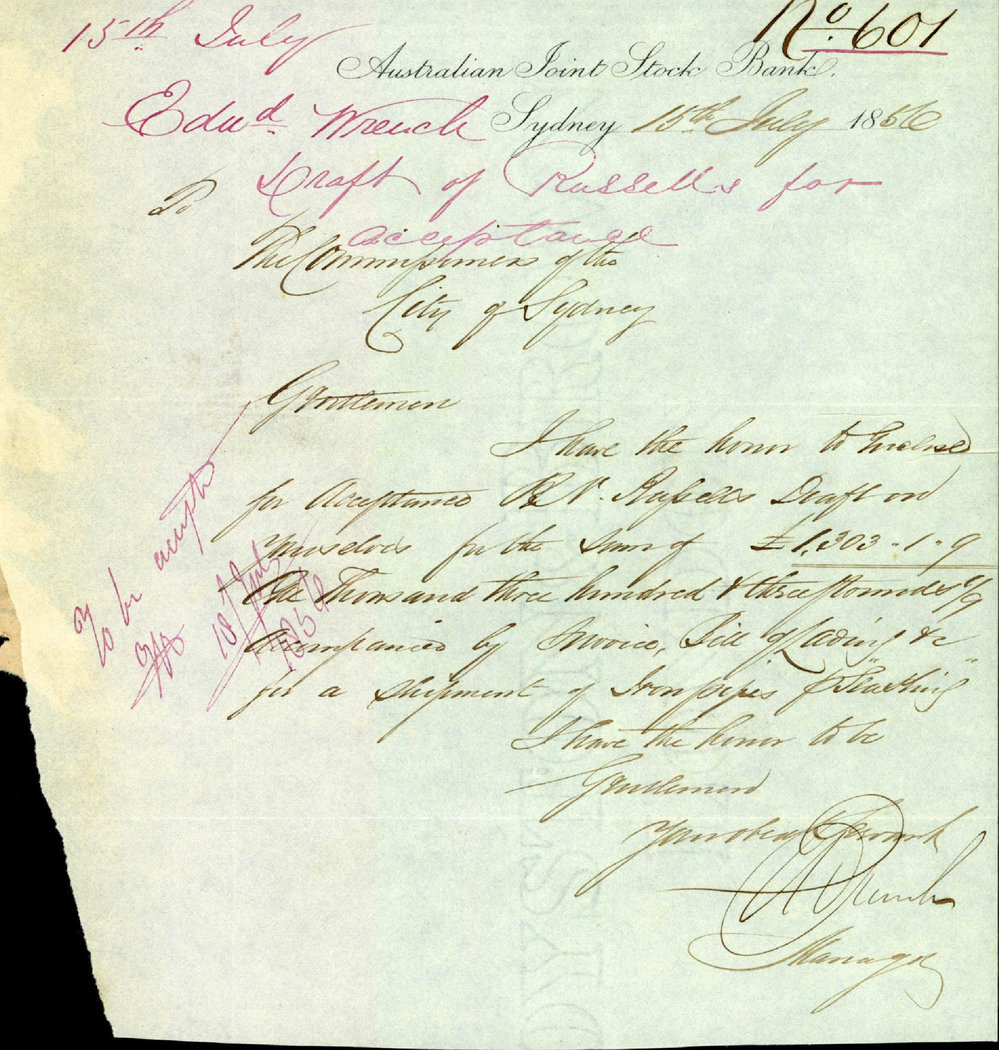 15th July
No. 601
Australian Joint Stock Bank.
Edwd Wrench
Sydney 15th July 1856
Draft of Russells for
acceptance
To
The Commissioners of the
City of Sydney
Gentlemen
I have the honor to Enclose
for Acceptance Russells Draft on
yourselves for the Sum of £1,303.1.9
One Thousand three hundred & three Pounds 1/9
accompanied by Invoice, Bill of Lading &c
for a Shipment of Iron pipes
I have the honor to be
Gentlemen
Your obedt Servant
Wrench
Manager
to be accepted
18 July
1856